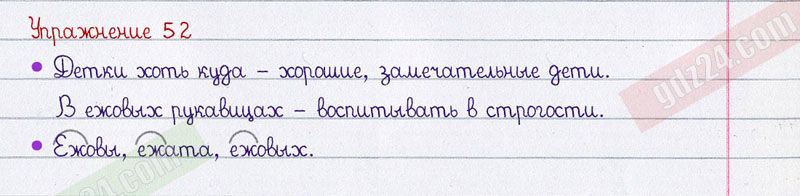 Упражнение 52
• Детки хоть куда – хорошие, замечательные дети.
В ежовых рукавицах – воспитывать в строгости.
• Ежовы, ежата, ежовых.
gdz24.com